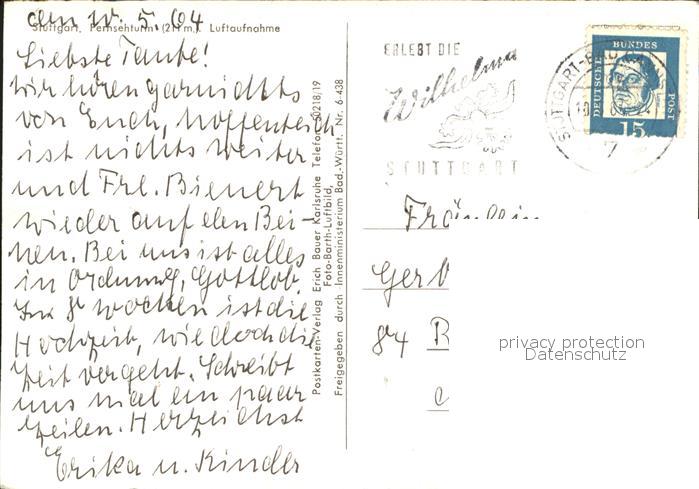 den 10. 5. 64
Stuttgart, Fernsehturm (211 m), Luftaufnahme
Liebste Tante!
Wir hören garnichts
von Euch, hoffentlich
ist nichts weiter
und Frl. Bienert
wieder auf den Bei-
nen. Bei uns ist alles
in Ordnung, Gottlob.
In 8 Wochen ist die
Hochzeit, wie doch die
Zeit vergeht. Schreibt
uns mal ein paar
Zeilen. Herzlichst
Erika u. Kinder
Postkarten-Verlag Erich Bauer Karlsruhe Telefon 60218/19
Foto-Barth-Luftbild,
Freigegeben durch Innenministerium Bad.-Württ. Nr. 6-438
ERLEBT DIE
Wilhelma
STUTTGART
STUTTGART-BAD
7
DEUTSCHE
BUNDES
POST
15
Fräulein
Ger
84 B
privacy protection
Datenschutz